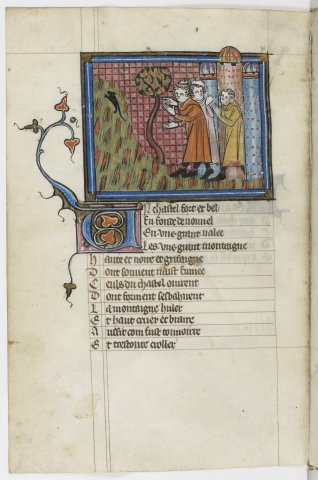 chastel fort et bel
En fonde de nouuel
En vne grant valee
Les vne grant montaigne
Haute et noire et grifaigne
Dont souuent naist fumee
Ceuls du chastel ouirent
Dont forment sesbahirent
La montaigne huler
Et haut crier et braire
Aussi com fust tonnoirre
Et trestoute croller